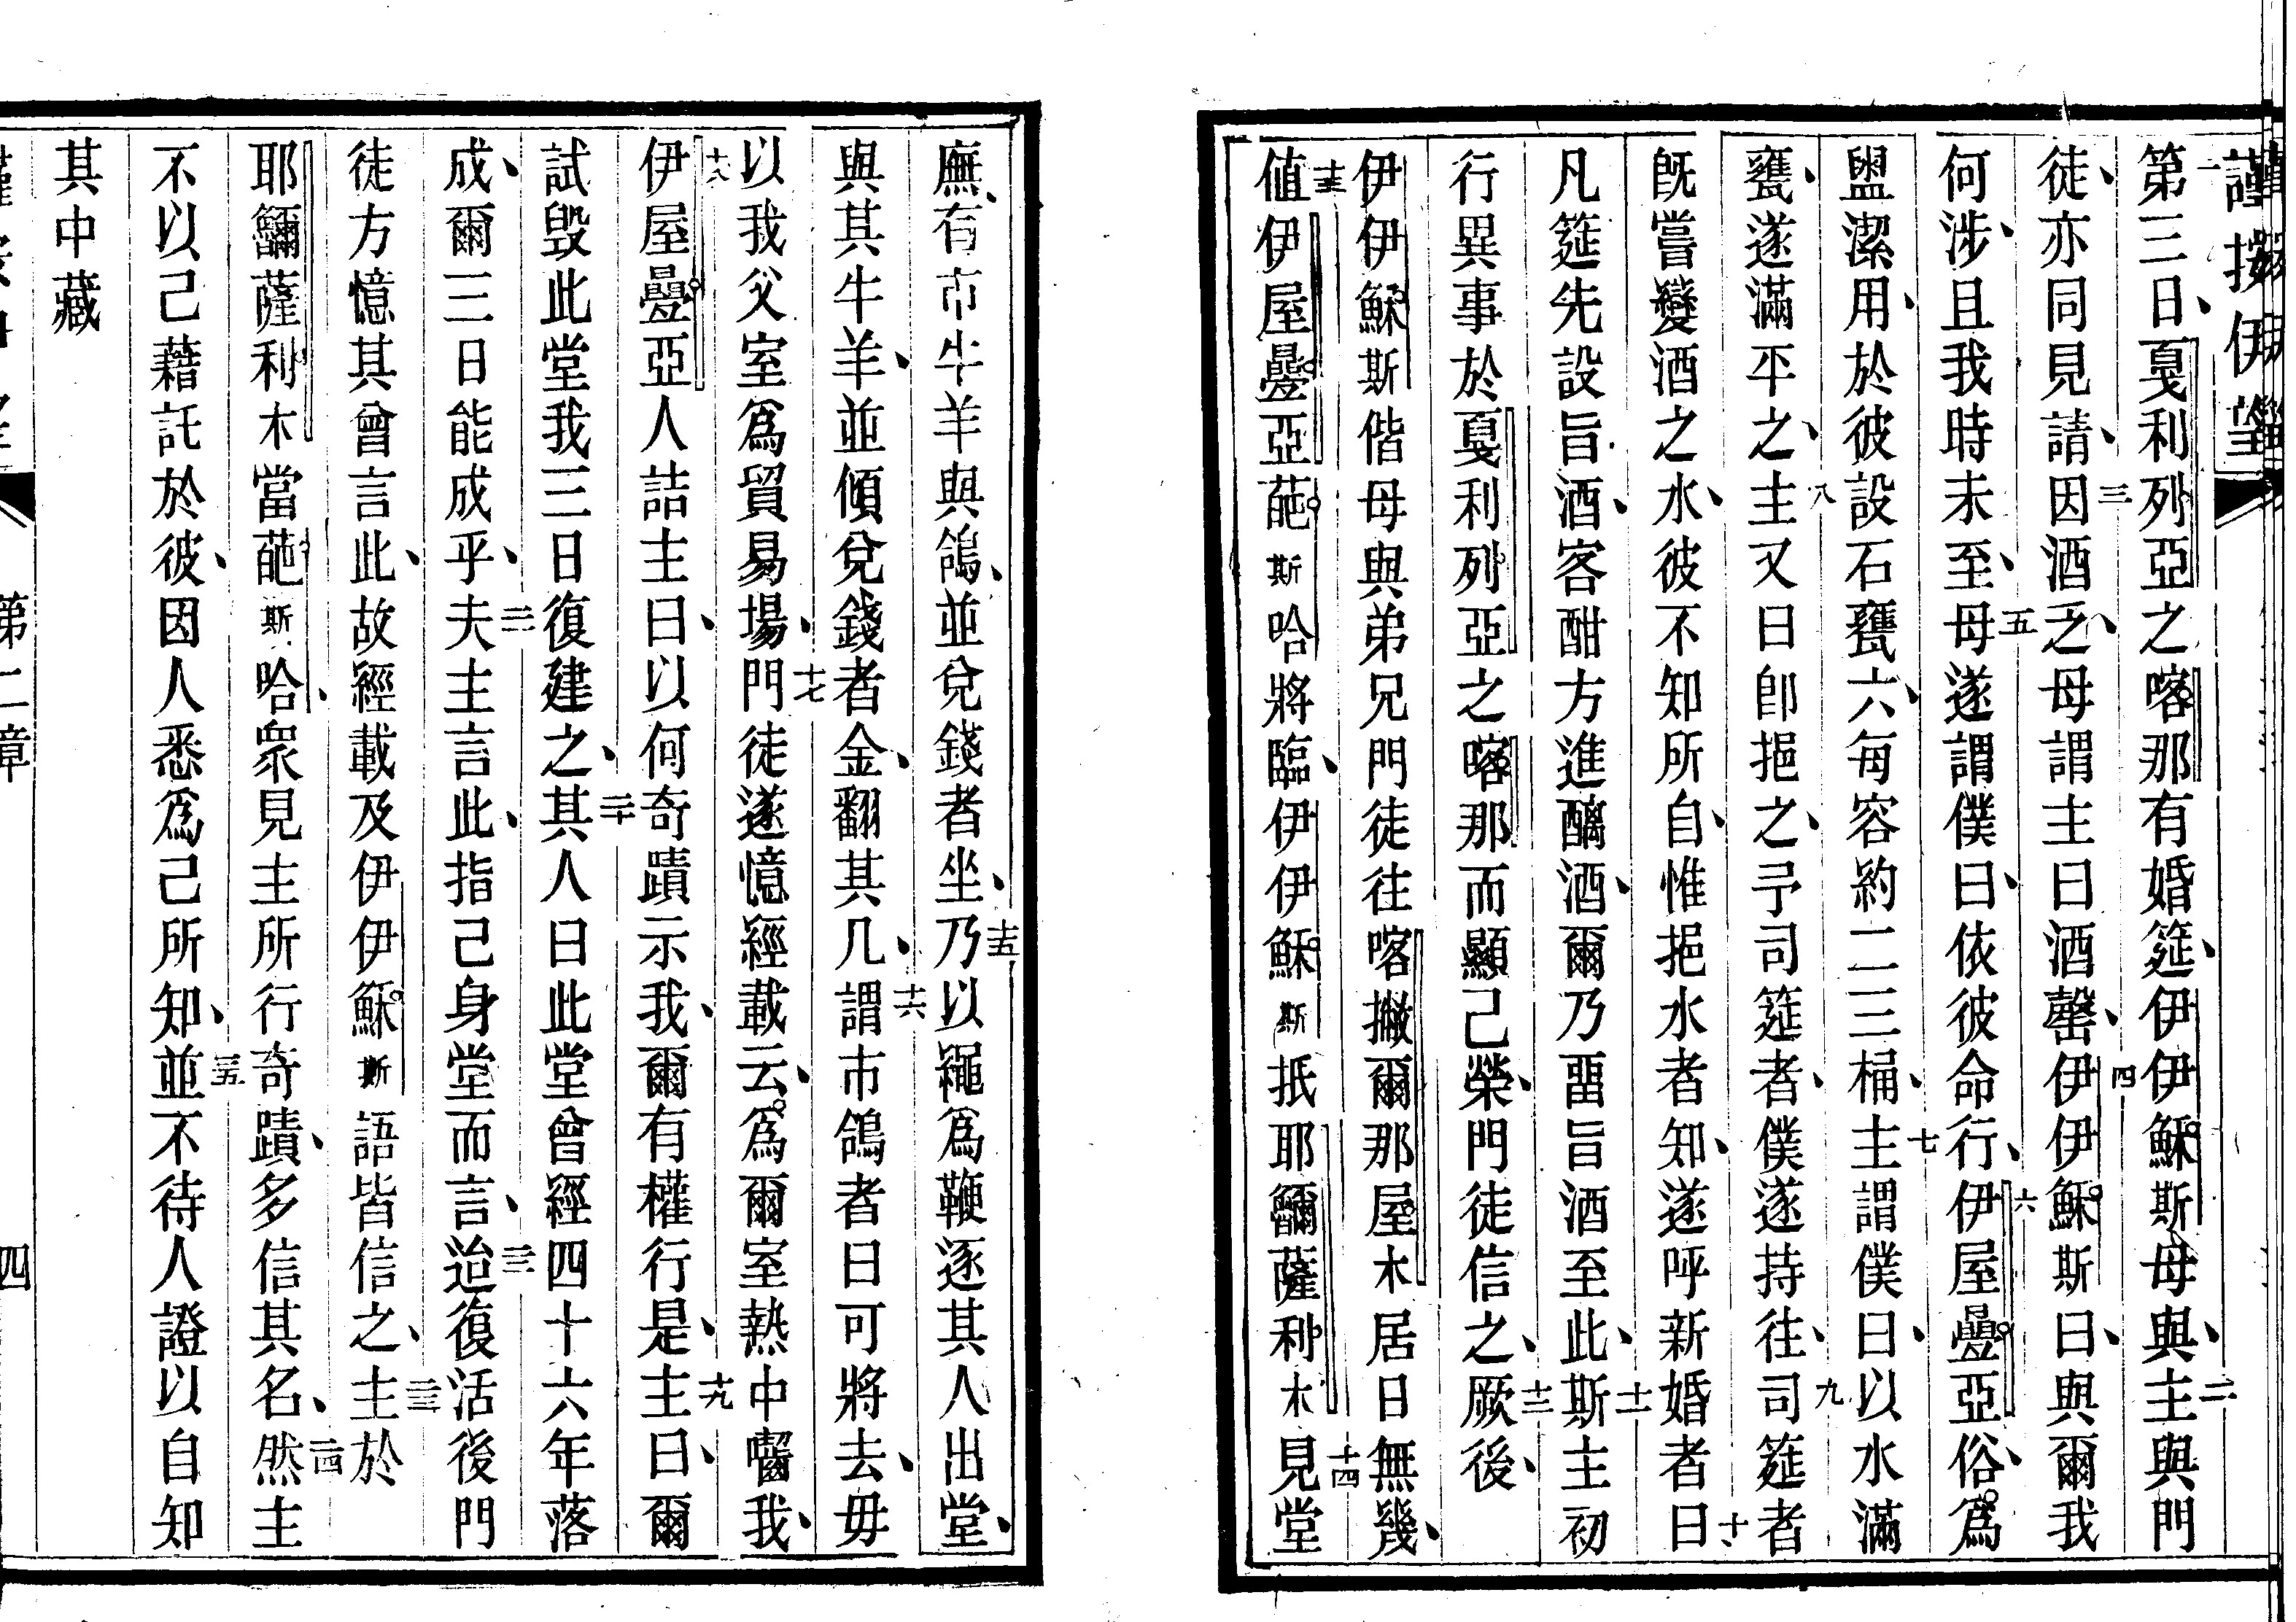 謹按伊望
一第三日、戛利列亞之喀那有婚筵、伊伊穌斯母與、二主與門
徒、亦同見請、三因酒乏、母謂主曰酒罄、四伊伊穌斯曰、與爾我
何涉、且我時未至、五母遂謂僕曰、依彼命行、六伊屋疊亞俗、爲
盥潔用、於彼設石甕六、每容約二三桶、七主謂僕曰、以水滿
甕、遂滿平之、八主又曰卽挹之、予司筵者、僕遂持往、九司筵者
旣嘗變酒之水、彼不知所自、惟挹水者知、遂呼新婚者曰、十
凡筵先設旨酒、客酣方進醨酒、爾乃畱旨酒至此、十一斯主初
行異事於戛利列亞之喀那而顯己榮、門徒信之、十二厥後、
伊伊穌斯偕母與弟兄門徒往喀撇爾那屋木居日無幾、
十三值伊屋疊亞葩斯哈將臨、伊伊穌斯抵耶穪薩利木十四見堂
廡、有市牛羊與鴿、並兌錢者坐、十五乃以繩爲鞭逐其人出堂、
與其牛羊、並傾兌錢者金、翻其几、十六謂市鴿者曰可將去、毋
以我父室爲貿易場、十七門徒遂憶經載云、爲爾室熱中囓我、
十八伊屋疊亞人詰主曰、以何奇蹟示我、爾有權行是、十九主曰、爾
試毀此堂我三日復建之、二十其人曰此堂曾經四十六年落
成、爾三日能成乎、二一夫主言此、指己身堂而言、二二迨復活後門
徒方憶其曾言此、故經載及伊伊穌斯語皆信之、二三主於
耶穪薩利木當葩斯哈、衆見主所行奇蹟、多信其名、二四然主
不以己藉託於彼、因人悉爲己所知、二五並不待人證以自知
其中藏
第二章
四